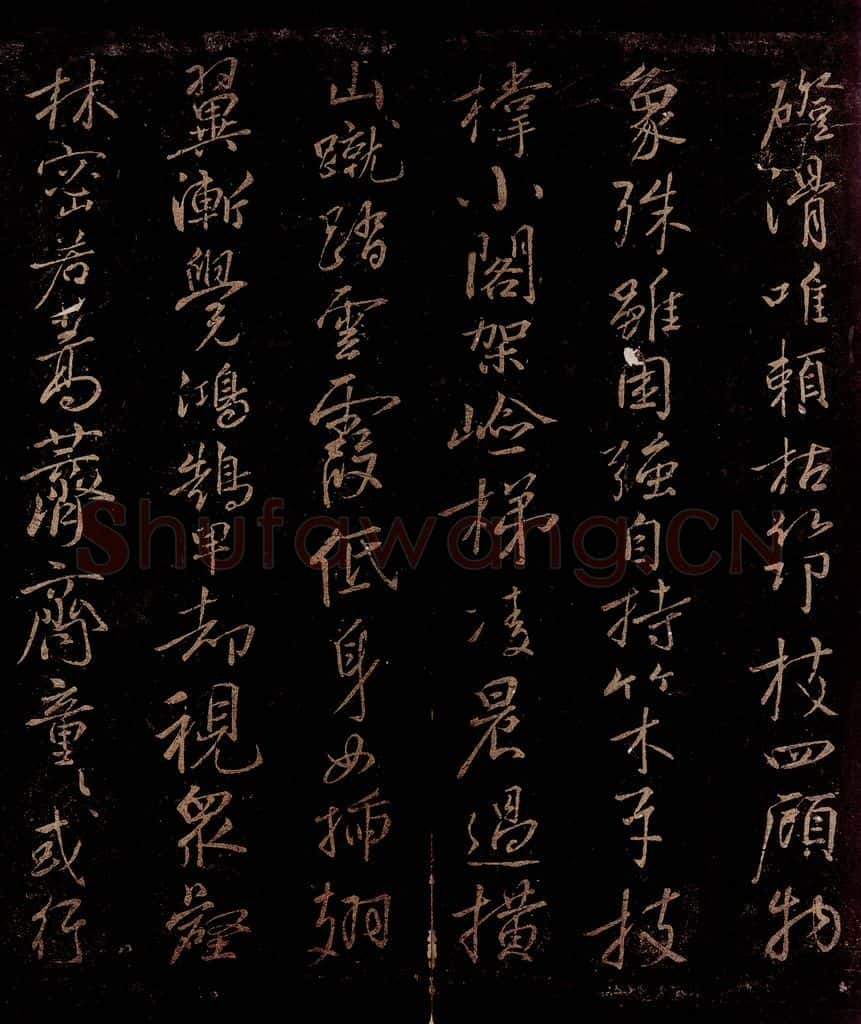 磴滑唯頼枯筇枝四顧物
象殊雖困強自持策木手技
撑小閣架崄梯凌晨過橫
山蹴踏雲霞低身如插翅
翼漸覺鴻鵠卑却視眾壑
林密若薺齊童童或行
ShufawangCN